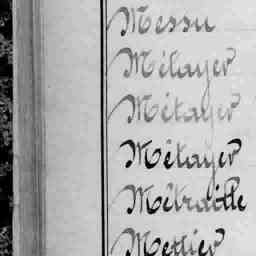 Messu
Métayer
Métayer
Métayer
Métraille
Mettier